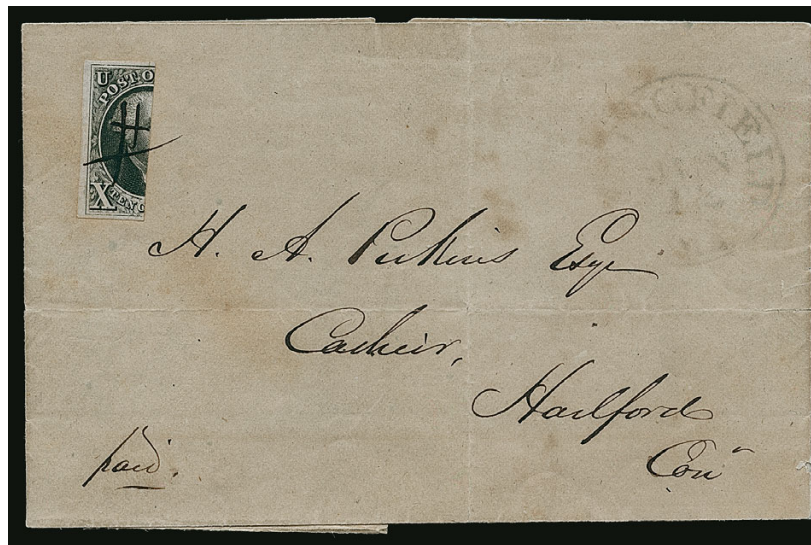 U
POST O
X
TEN C
GFIELD
H. A. Perkins Esqr
Casheir,
Hartford
Conn
paid.